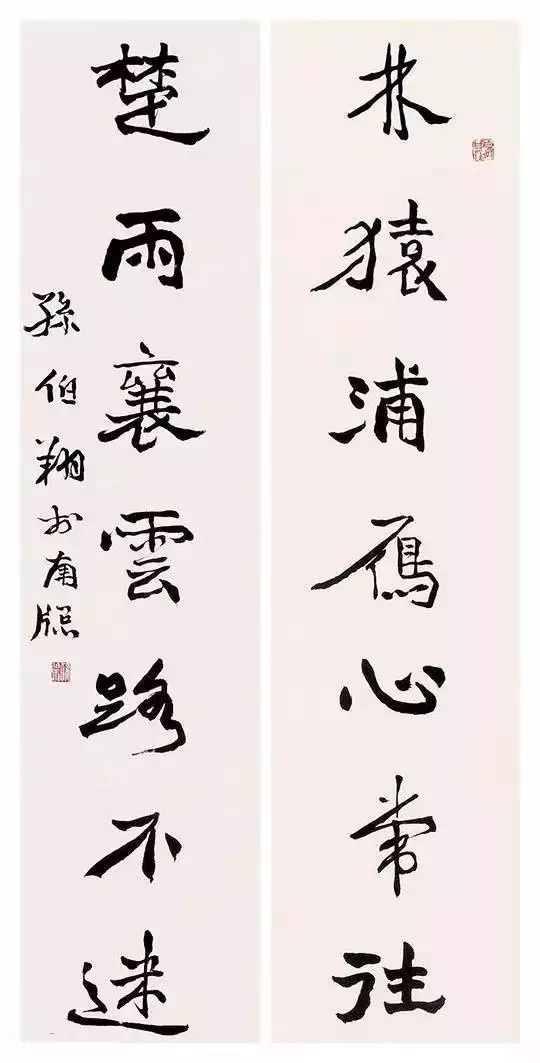 林猿浦鴈心常往
楚雨襄雲路不迷
孫伯翔书南牕